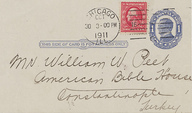 CHICAGO
OCT
30 3-00 PM
1911
ILL.
THIS SIDE OF CARD IS FOR ADDRESS ONLY
Mr William W. Peet
American Bible House
Constantinople
Turkey